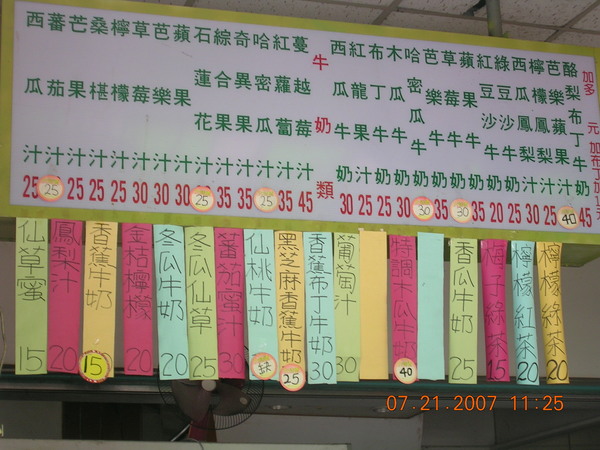 西瓜汁
蕃茄汁
芒果汁
桑椹汁
檸檬汁
草莓汁
芭樂汁
蘋果汁
石蓮花汁
綜合果汁
奇異果汁
哈密瓜汁
紅蘿蔔汁
蔓越莓汁
25 25 25 25 25 30 30 30 25 35 35 25 35 45
牛奶類
西瓜牛奶
紅龍果牛奶
布丁牛奶
木瓜牛奶
哈密瓜牛奶
芭樂牛奶
草莓牛奶
蘋果牛奶
紅豆沙牛奶
綠豆沙牛奶
西瓜鳳梨汁
檸檬鳳梨汁
芭樂蘋果汁
酪梨布丁牛奶
30 25 25 25 30 35 30 35 20 25 30 25 40
加布丁加
仙草蜜 15
鳳梨汁 20
香蕉牛奶 15
金桔檸檬 20
冬瓜牛奶 20
冬瓜仙草 25
蕃茄蜜汁 30
仙桃牛奶
黑芝麻香蕉牛奶 25
香蕉布丁牛奶 30
葡萄汁 30
特調木瓜牛奶 40
香瓜牛奶 25
梅子綠茶 15
檸檬紅茶 20
檸檬綠茶 20
07.21.2007 11:25